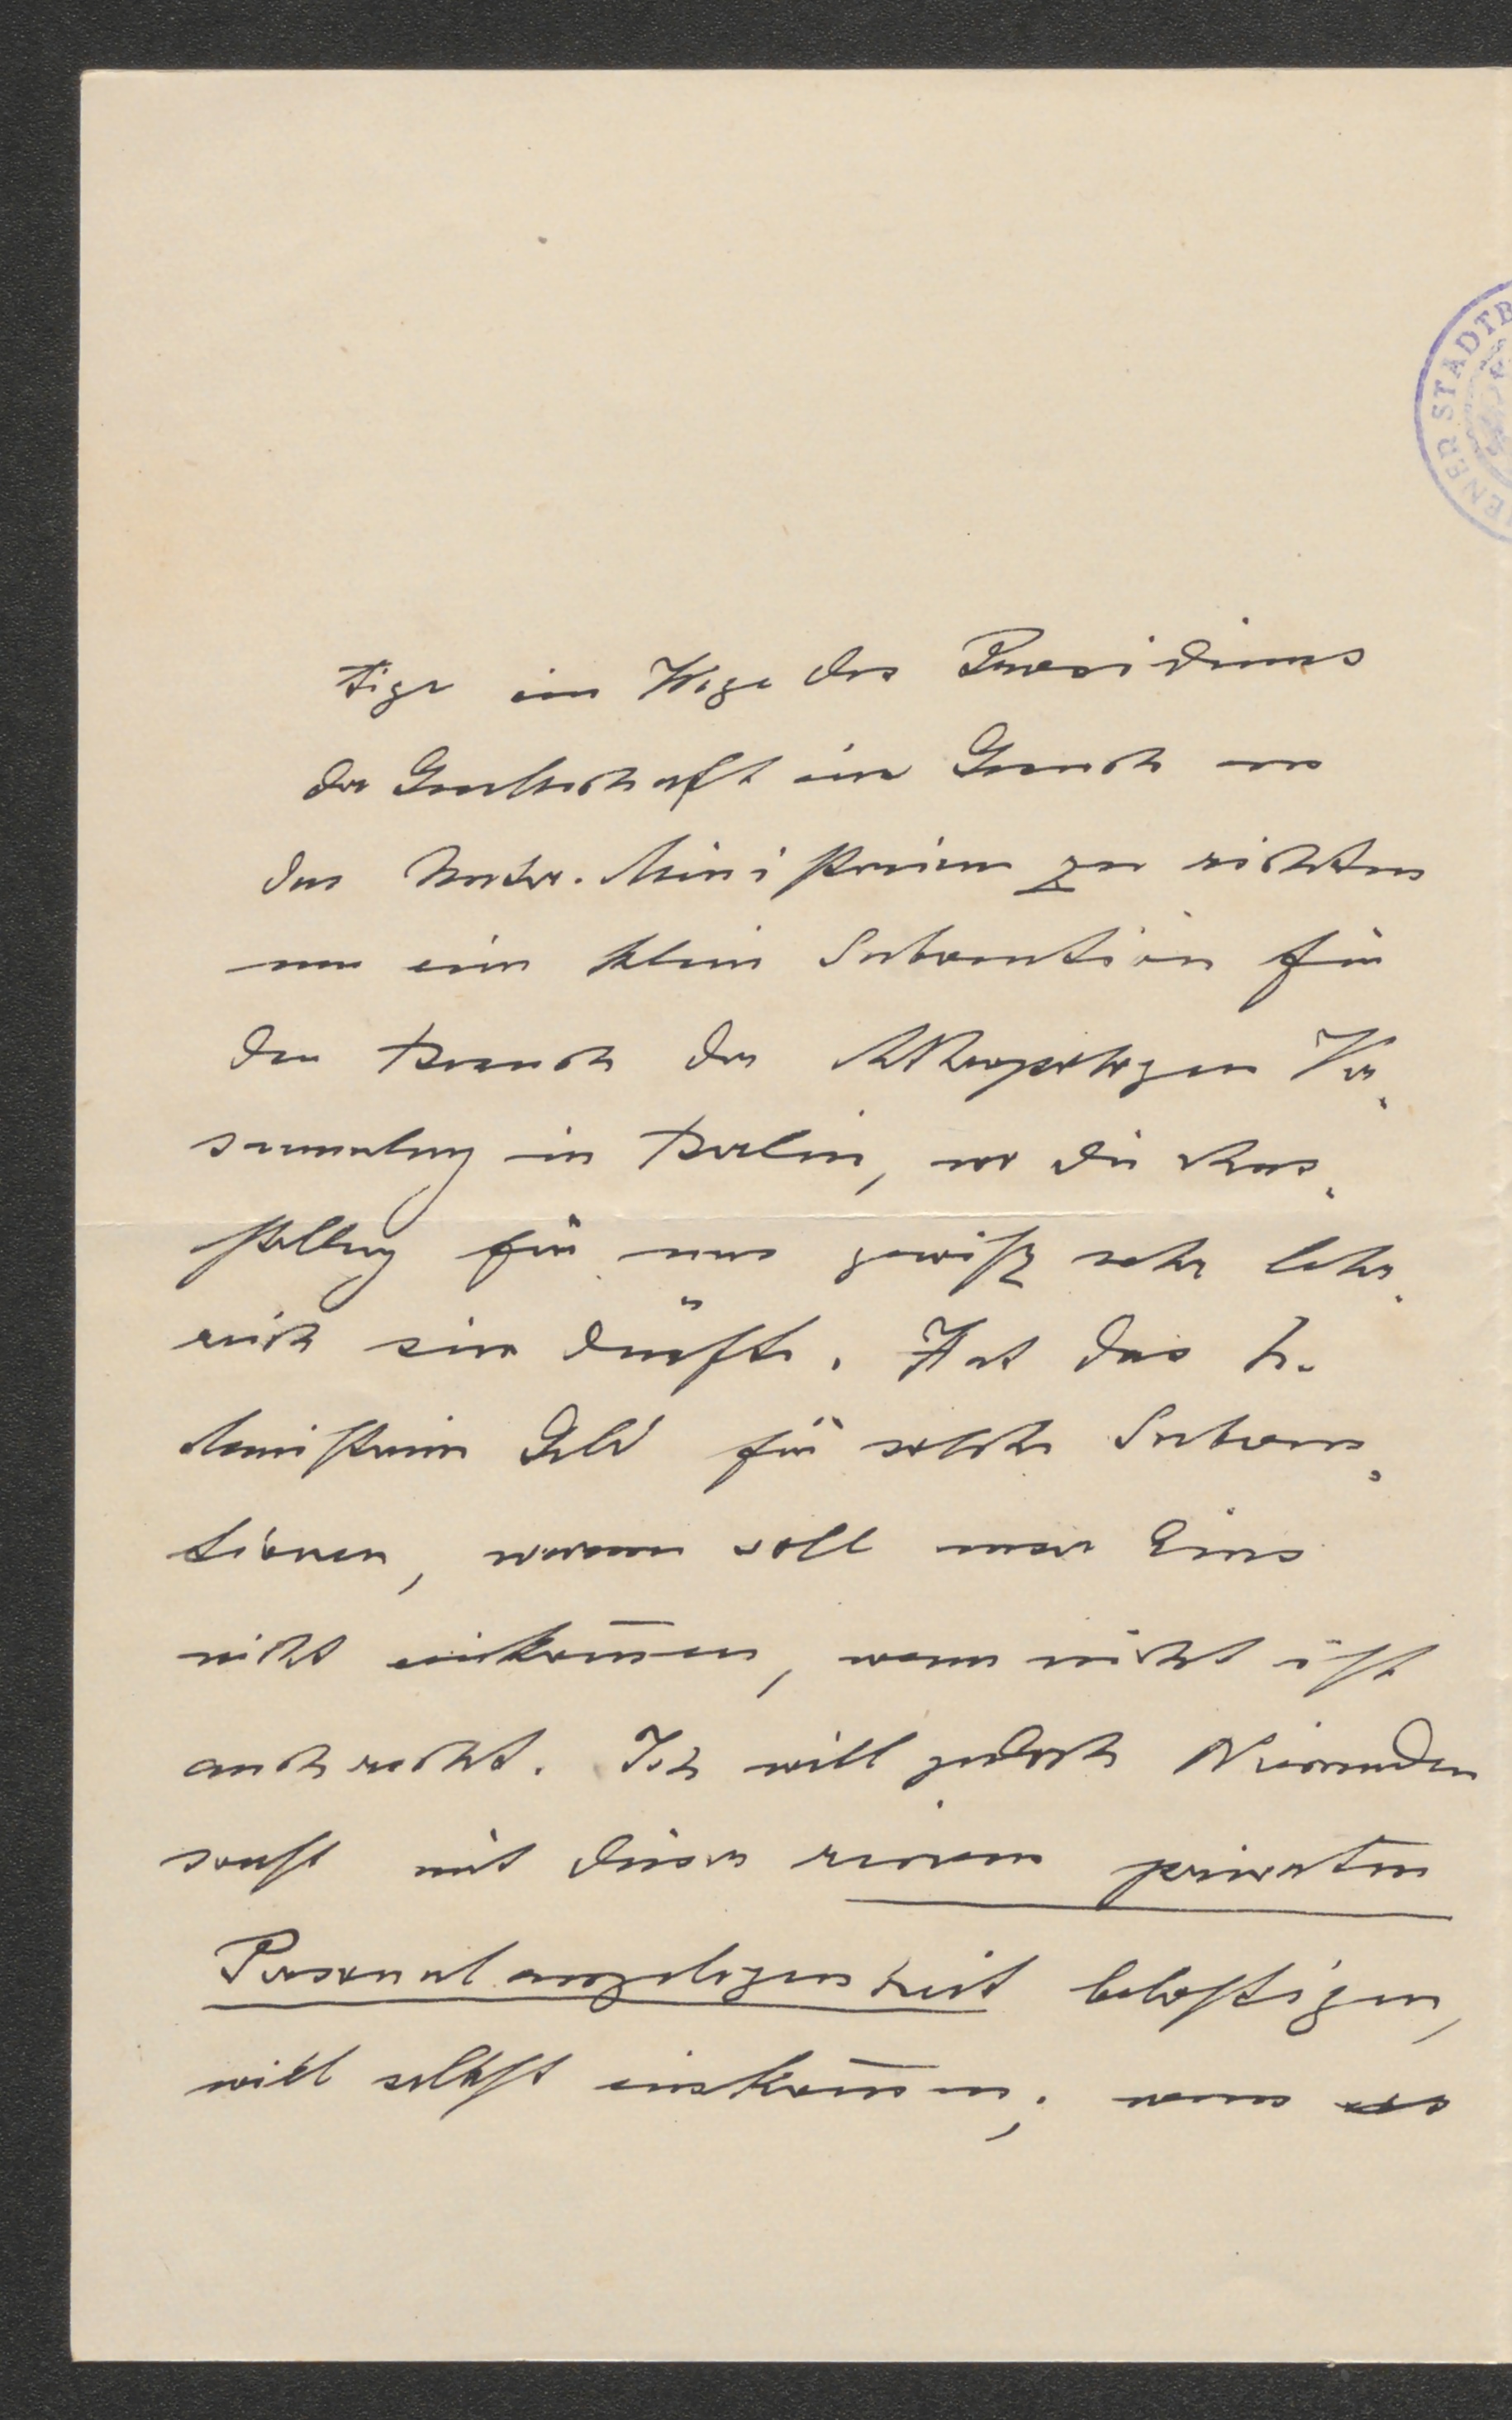 tige im Wege des Praesidiums
der Gesellschaft ein Gesuch an
das Unter. Ministerium zu richten
um eine kleine Subvention für
den Besuch der Anthropologen Ver-
sammlung in Berlin, wo die Aus-
stellung für uns gewiß sehr lehr-
reich sein dürfte. Hat das h.
Ministerium Geld für solche Subven-
tionen, warum soll man Eins
nicht einkom̅en, wenn nicht ist
auch recht. Ich will jedoch Niemanden
sonst mit dieser reinen privaten
Personalangelegenheit belästigen,
will selbst einkom̅en; wenn es
WIENER STADTB